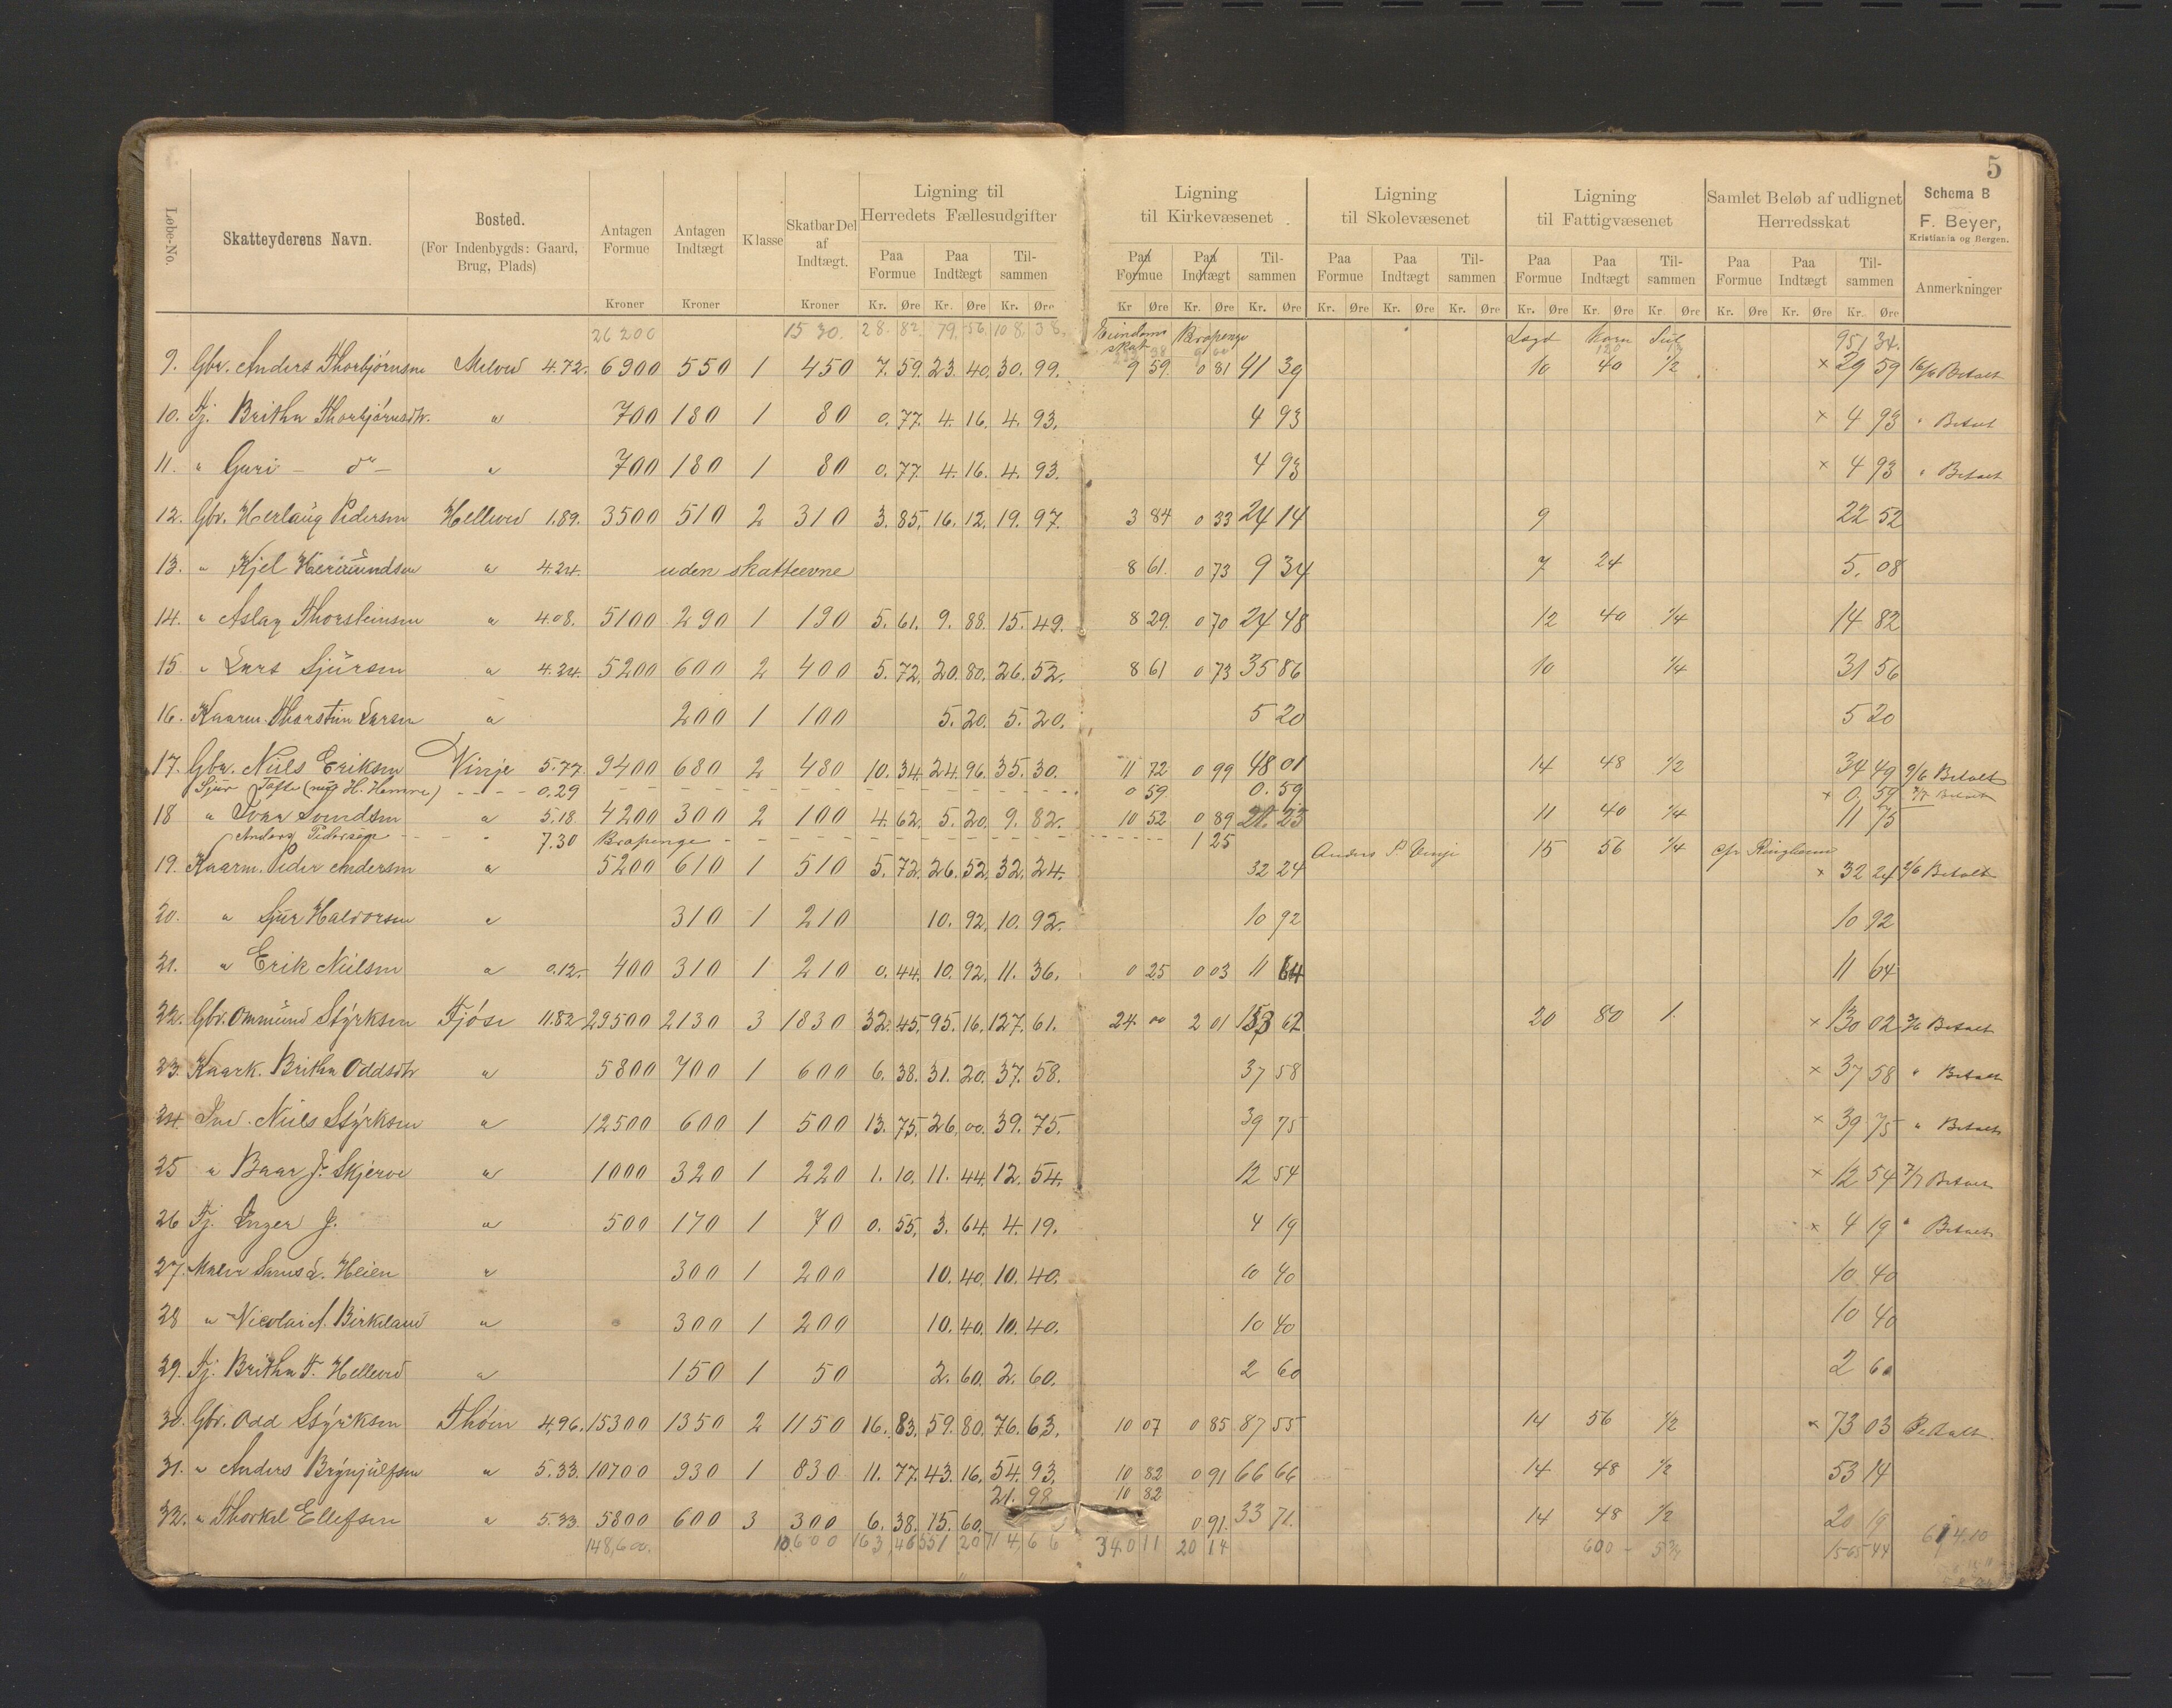 5
Løbe-No.
Skatteyderens Navn.
Bosted.
(For Indenbygds: Gaard,
Brug, Plads)
Antagen
Formue
Antagen
Indtægt
Klasse
Skatbar Del
af
Indtægt.
Ligning til
Herredets Fællesudgifter
Ligning
til Kirkevæsenet
Ligning
til Skolevæsenet
Ligning
til Fattigvæsenet
Samlet Beløb af udlignet
Herredsskat
Schema B
F. Beyer,
Kristiania og Bergen.
Paa Formue Paa Indtægt Til-sammen Paa Formue Paa Indtægt Til-sammen Paa Formue Paa Indtægt Til-sammen Paa Formue Paa Indtægt Til-sammen Paa Formue Paa Indtægt Til-sammen Anmerkninger
Kroner Kroner Kroner Kr. Øre Kr. Øre Kr. Øre Kr Øre Kr. Øre Kr. Øre Kr. Øre Kr. Øre Kr. Øre Kr. Øre Kr. Øre Kr. Øre Kr. Øre Kr. Øre Kr. Øre
26200 1530. 28.82 79.56 108.38. Eiendoms skat Bropenge Lagd Korn 951 34.
9. Gbr. Anders Thorbjørnsen Melved 4.72. 6900 550 1 450 7.59. 23.40. 30.99. 9 59. 0 81 41 39 10 40 1/2 × 29 59 Betalt
10. Tj. Britha Thorbjørnsdtr. " 700 180 1 80 0.77. 4.16. 4.93. 4 93 × 4 93 " Betalt
11. " Guri - do - " 700 180 1 80 0.77. 4.16. 4.93. 4 93 × 4 93 " Betalt
12. Gbr. Herlaug Pedersen Helleved 1.89. 3500 510 2 310 3.85. 16.12. 19.97. 3 84 0 33 24 14 9 22 52
13. " Kjel " 4.24. uden skatteevne 8 61. 0 73 9 34 7 24 5. 08
14. " Aslag Thorsteinsen " 4.08. 5100 290 1 190 5.61. 9.88. 15.49. 8 29. 0 70 24 48 12 40 1/4 14 82
15 " Lars Sjursen " 4.24. 5200 600 2 400 5.72. 20.80. 26.52. 8 61 0 73 35 86 10 1/4 31 56
16. Kaarm. Thorstein Larsen " 200 1 100 5.20. 5.20. 5 20 5 20
17. Gbr. Niels Eriksen Vinje 5.77. 9400 680 2 480 10.34. 24.96. 35.30. 11 72 0 99 48 01 14 48 1/2 34 49 9/6 Betalt
Sjur Tofte (nu H. Hamre) - - - - 0.29 - - - 0 59 0. 59 × 0. 59 Betalt
18 " Ivar Svendsen " 5.18. 4200 300 2 100 4.62. 5.20. 9.82. 10 52 0 89 21. 23 11 40 1/4 11 75
Anders Pedersen - - " 7.30 Bropenge - - - 1 25 Anders P. Vinje 15 56 1/4
19. Kaarm. Peder Andersen " 5200 610 1 510 5.72. 26.52. 32.24. 32 24 × 32 24 2/6 Betalt
20. " Sjur Halvorsen " 310 1 210 10.92. 10.92. 10 92 10 92
21. " Erik Nielsen " 0.12. 400 310 1 210 0.44. 10.92. 11.36. 0 25 0 03 11 64 11 64
22. Gbr. Ommund Styrksen Fjøse 11.82 29500 2130 3 1830 32.45. 95.16. 127.61. 24. 00 2 01 153 62 20 80 1. × 130 02 3/6 Betalt
23. Kaark. Britha Oddsdtr " 5800 700 1 600 6.38. 31.20. 37.58. 37 58 × 37 58 " Betalt
24. Ind. Niels Styrksen " 12500 600 1 500 13.75. 26.00. 39.75. 39 75 × 39 75 " Betalt
25 " Baar J. Skjerve " 1000 320 1 220 1.10. 11.44. 12.54. 12 54 × 12 54 7/7 Betalt
26 Tj. Inger J. " 500 170 1 70 0.55. 3.64. 4.19. 4 19 × 4 19 " Betalt
27. Maler Heien " 300 1 200 10.40. 10.40. 10 40 10 40
28 " Nicolai A. Birkeland " 300 1 200 10.40. 10.40. 10 40 10 40
29. Tj. Britha T. Helleved " 150 1 50 2.60. 2.60. 2 60 2 60
30. Gbr. Odd Styrksen Thøen 4,96. 15300 1350 2 1150 16.83. 59.80. 76.63. 10 07 0 85 87 55 14 56 1/2 × 73 03 Betalt.
31. " Anders Brynjulfsen " 5.33. 10700 930 1 830 11.77. 43.16. 54.93. 10 82 0 91 66 66 14 48 1/2 53 14
21.98 10 82
32. " Thorkel Ellefsen " 5.33. 5800 600 3 300 6.38. 15.60. 0 91. 33 71. 14 48 1/2 20 19
148,600. 10600 163,46 551 20 714,66 340 11 20 14 600 1565 44